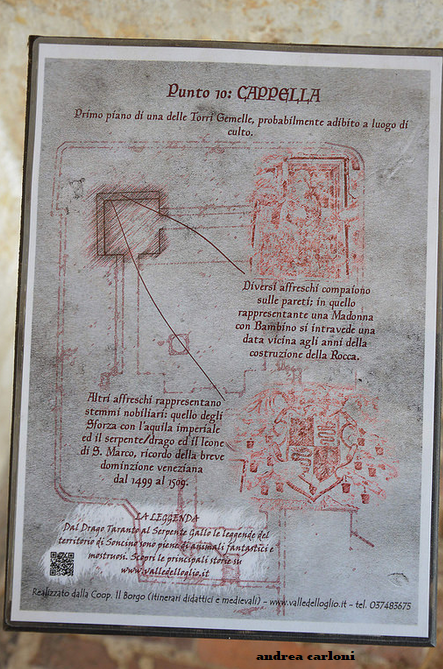 Punto 10: CAPPELLA
Primo piano di una delle Torri Gemelle, probabilmente adibito a luogo di
culto.
Diversi affreschi compaiono
sulle pareti; in quello
rappresentante una Madonna
con Bambino si intravede una
data vicina agli anni della
costruzione della Rocca.
Altri affreschi rappresentano
stemmi nobiliari: quello degli
Sforza con l'aquila imperiale
ed il serpente/drago ed il leone
di S. Marco, ricordo della breve
dominzione veneziana
dal 1499 al 1509.
LA LEGGENDA
Dal Drago Taranto al Serpente Gallo le leggende del
territorio di Soncino sono piene di animali fantastici e
mostruosi. Scopri le principali storie su
www.valledelloglio.it
Realizzato dalla Coop. Il Borgo (itinerari didattici e medievali) - www.valledelloglio.it - tel. 037483675
andrea carloni